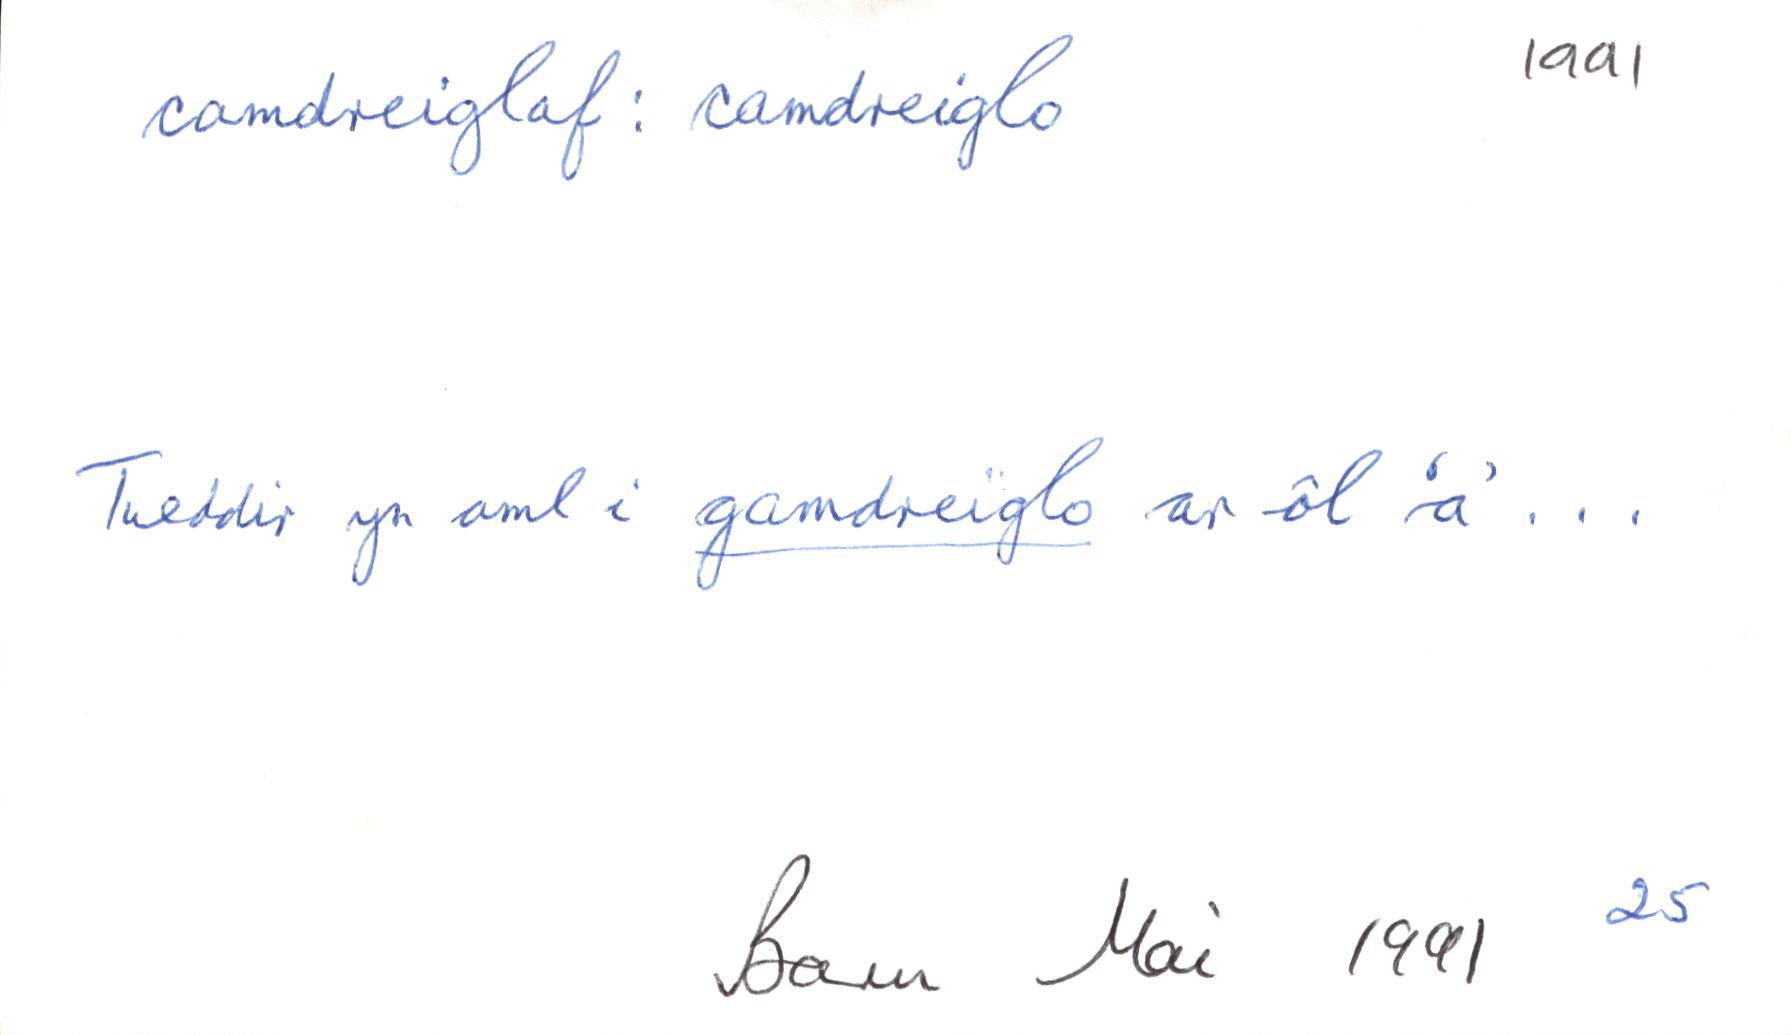 1991
camdreiglaf: camdreiglo
Tueddir yn aml i gamdreiglo ar ôl 'a' . . .
Barn Mai 1991 25